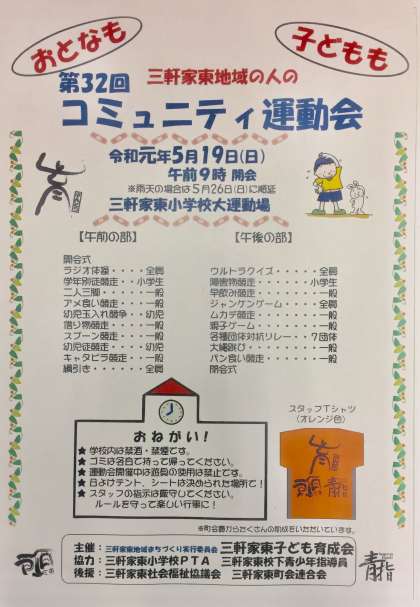 おとなも
子どもも
第32回
三軒家東地域の人の
コミュニティ運動会
令和元年5月19日(日)
午前9時 開会
※雨天の場合は5月26日(日)に順延
三軒家東小学校大運動場
【午前の部】
開会式
ラジオ体操・・・・・全員
学年別徒競走・・・小学生
二人三脚・・・・・・一般
アメ食い競走・・・・一般
幼児玉入れ競争・・幼児
借り物競走・・・・・一般
スプーン競走・・・・一般
幼児徒競走・・・・・幼児
キャタピラ競走・・・一般
綱引き・・・・・・・全員
【午後の部】
ウルトラクイズ・・・・・・全員
障害物競走・・・・・・・小学生
早飲み競走・・・・・・・・一般
ジャンケンゲーム・・・・・全員
ムカデ競走・・・・・・・・一般
親子ゲーム・・・・・・・・一般
各種団体対抗リレー・・７団体
大縄跳び・・・・・・・・・一般
パン食い競走・・・・・・・一般
閉会式
おねがい!
★ 学校内は禁酒・禁煙です。
★ ゴミは各自で持って帰ってください。
★ 運動会開催中は遊具の使用は禁止です。
★ 日よけテント、シートは決められた場所で!
★ スタッフの指示は厳守してください。
ルールを守って楽しい行事に!
スタッフTシャツ
(オレンジ色)
※町会費からたくさんの助成をいただいています。
主催：三軒家東地域まちづくり実行委員会 三軒家東子ども育成会
協力：三軒家東小学校PTA 三軒家東校下青少年指導員
後援：三軒家東社会福祉協議会 三軒家東町会連合会